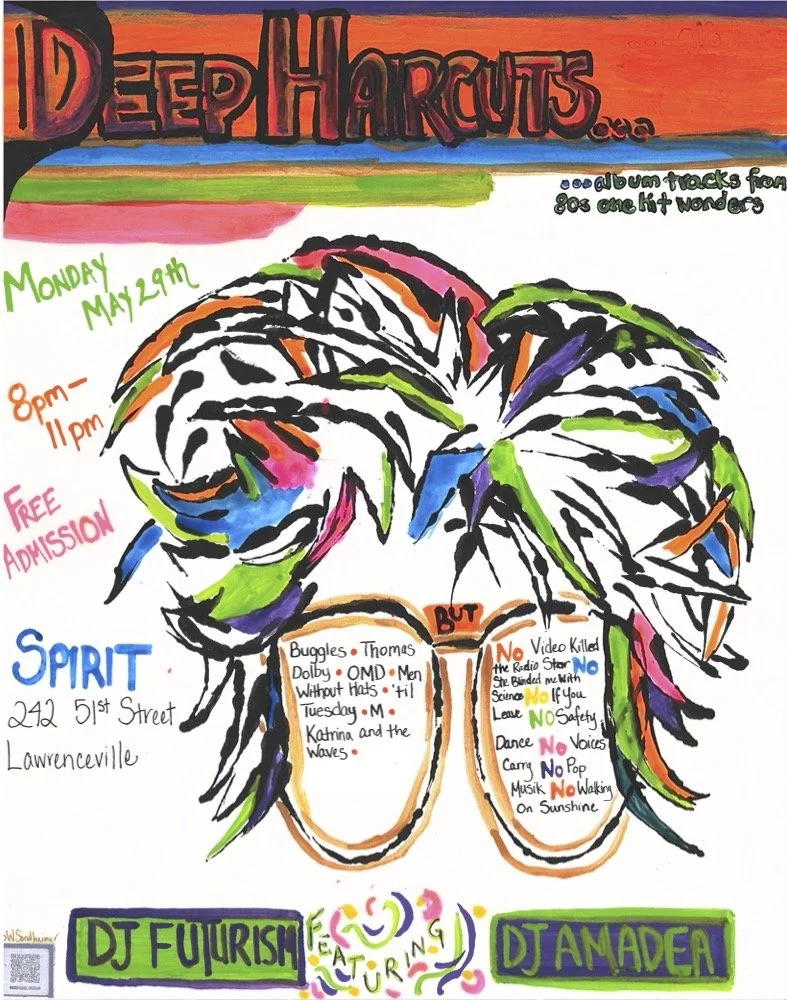 DEEP HAIRCUTS...
...album tracks from
80s one hit wonders
MONDAY
MAY 29th
8pm-
11pm
FREE
ADMISSION
SPIRIT
242 51st Street
Lawrenceville
BUT
Buggles • Thomas
Dolby • OMD • Men
Without Hats • 'til
Tuesday • M •
Katrina and the
Waves •
No Video Killed
the Radio Star No
She Blinded me With
Science No If You
Leave NO Safety
Dance No Voices
Carry No Pop
Musik No Walking
On Sunshine
DJ FUTURISM
FEATURING
DJ AMADEA